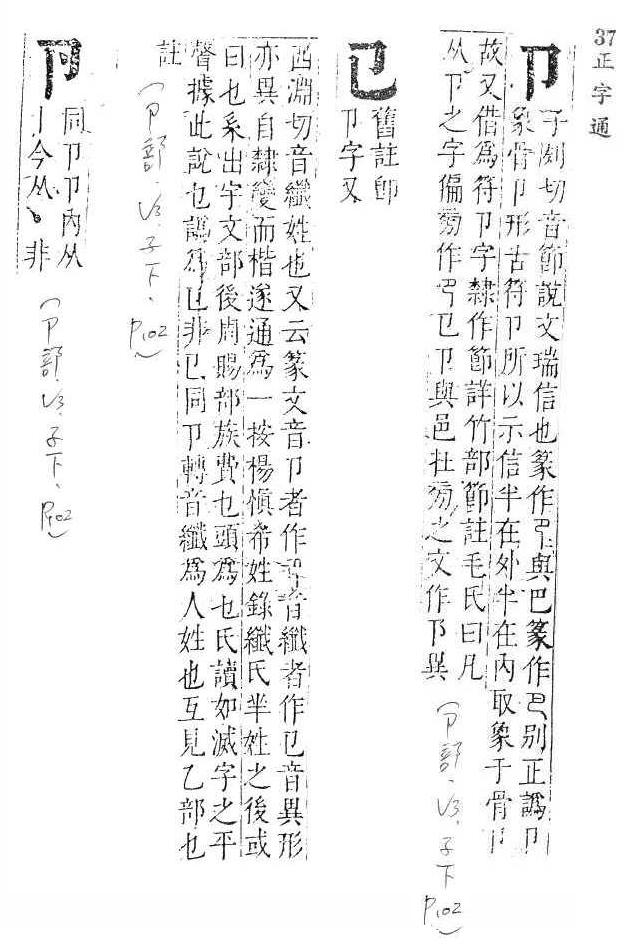 37正字通
卩 子列切音節說文瑞信也篆作與巴篆作別正譌卩
象骨卩形古符卩所以示信半在外半在內取象于骨卩
故又借為符卩字隸作節詳竹部節註毛氏曰凡
从卩之字偏旁作㔾卩與邑在旁之文作阝異
(卩部.V3.子下.P102)
㔾 舊註即
卩字又
西淵切音纖姓也又云篆文音卩者作音纖者作㔾音異形
亦異自隸變而楷遂通為一按楊慎希姓錄纖氏羋姓之後或
曰也系出宇文部後周賜部族費也頭為也氏讀如滅字之平
聲據此說也譌為㔾非㔾同卩轉音纖為人姓也互見乙部也
註
(卩部.V3.子下.P102)
卪 同卩卩內从
丨今从丶非
(卩部.V3.子下.P102)